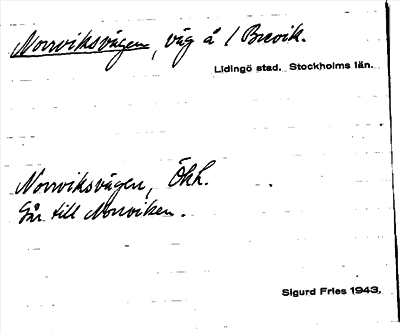 Norrviksvägen, väg å 1 Brevik.
Lidingö stad. Stockholms län.
Norrviksvägen, Ökk.
Går till Norrviken.
Sigurd Fries 1943.